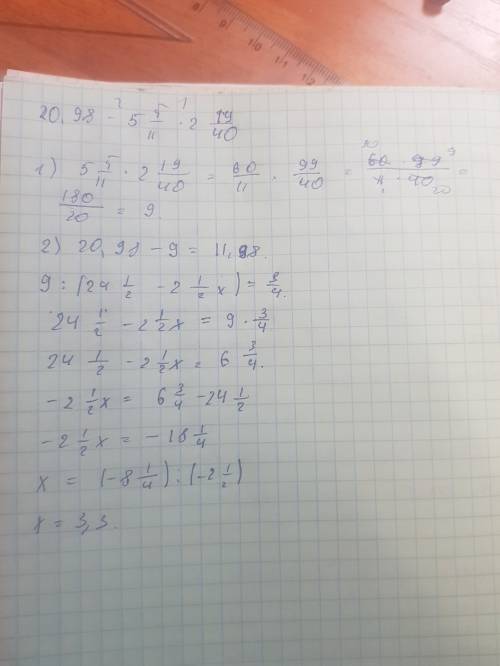 20,98 - 5 5/11 · 2 19/40
2 1
1) 5 5/11 · 2 19/40 = 60/11 · 99/40 = 60 · 99/11 · 40 =
180/20 = 9.
2) 20,98 - 9 = 11,98.
9 : (24 1/2 - 2 1/2 x) = 3/4.
24 1/2 - 2 1/2 x = 9 · 3/4
24 1/2 - 2 1/2 x = 6 3/4.
- 2 1/2 x = 6 3/4 - 24 1/2
- 2 1/2 x = - 18 1/4
x = (-8 1/4) : (-2 1/2)
x = 3,3.